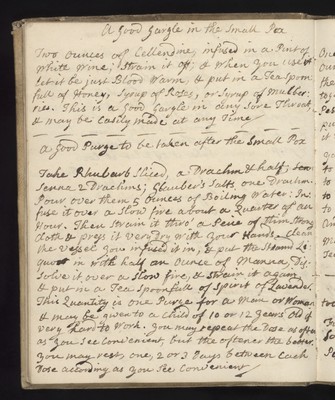 A Good Gargle in the Small Pox
Two ounces of Cellendine, infused in a Pint of
White Wine; Strain it off; & When you use it
let it be just Blood Warm, & put in a Tea Spoon-
full of Honey, Syrup of Roses, or Syrup of Mulber-
ries. This is a Good Gargle in any Sore Throat,
& may be Easily made at any Time
A Good Purge to be taken after the Small Pox
Take Rhubarb Sliced, a Drachm & half;
Senna 2 Drachms; Glauber's Salts one Drachm.
Pour over them 5 ounces of Boiling Water: In-
fuse it over a Slow fire about a Quarter of an
Hour. Then Strain it thro' a Peice of thin
Cloth & press it very Dry with your Hands. Clean
the Vessel you infused it in, & put the Strained Li-
quor in with half an Ounce of Manna, Dis-
solve it over a Slow fire, & Strain it again
& put in a Tea Spoonfull of Spirit of Lavender.
This Quantity is one Purge for a Man or Woman
& may be given to a Child of 10 or 12 years Old if
very hard to Work. You may repeat the Dose as often
as you See Convenient, but the oftener the better.
You may rest one, 2 or 3 Days between Each
Dose according as you See Convenient